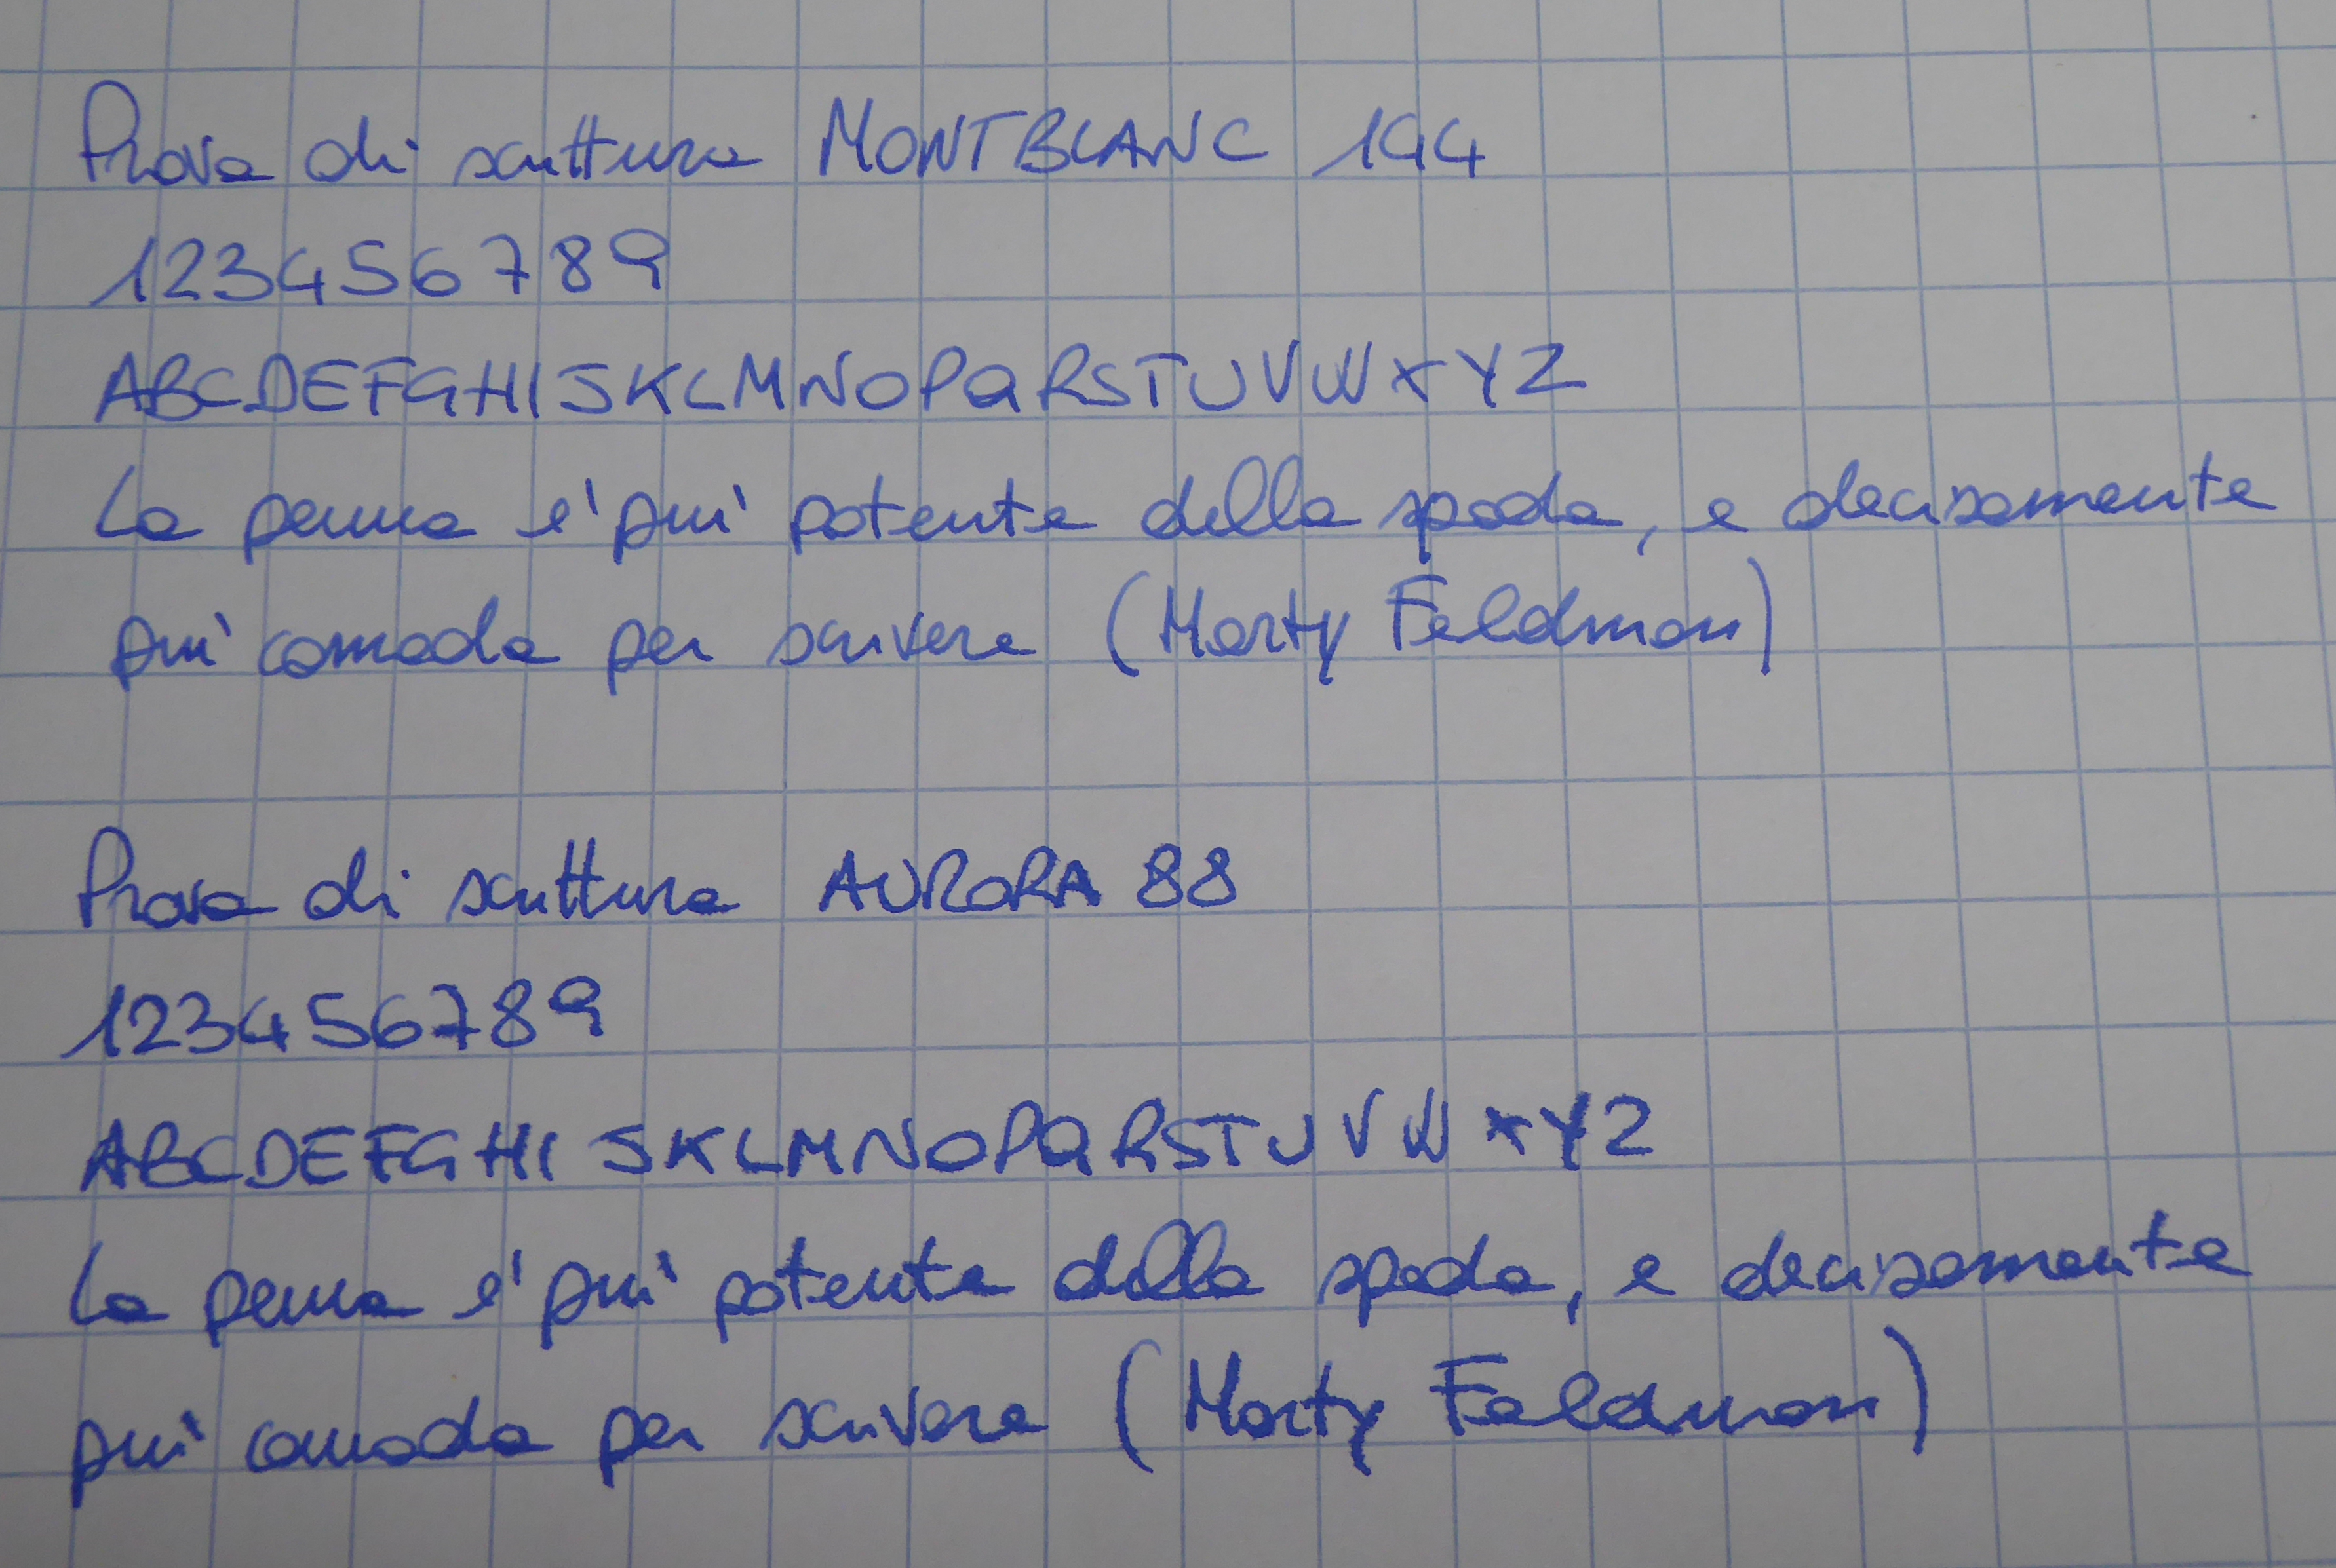 Prova di scrittura MONTBLANC 144
123456789
ABCDEFGHIJKLMNOPQRSTUVWXYZ
La penna è più potente della spada, e decisamente
più comoda per scrivere (Marty Feldman)
Prova di scrittura AURORA 88
123456789
ABCDEFGHIJKLMNOPQRSTUVWXYZ
La penna è più potente della spada, e decisamente
più comoda per scrivere (Marty Feldman)